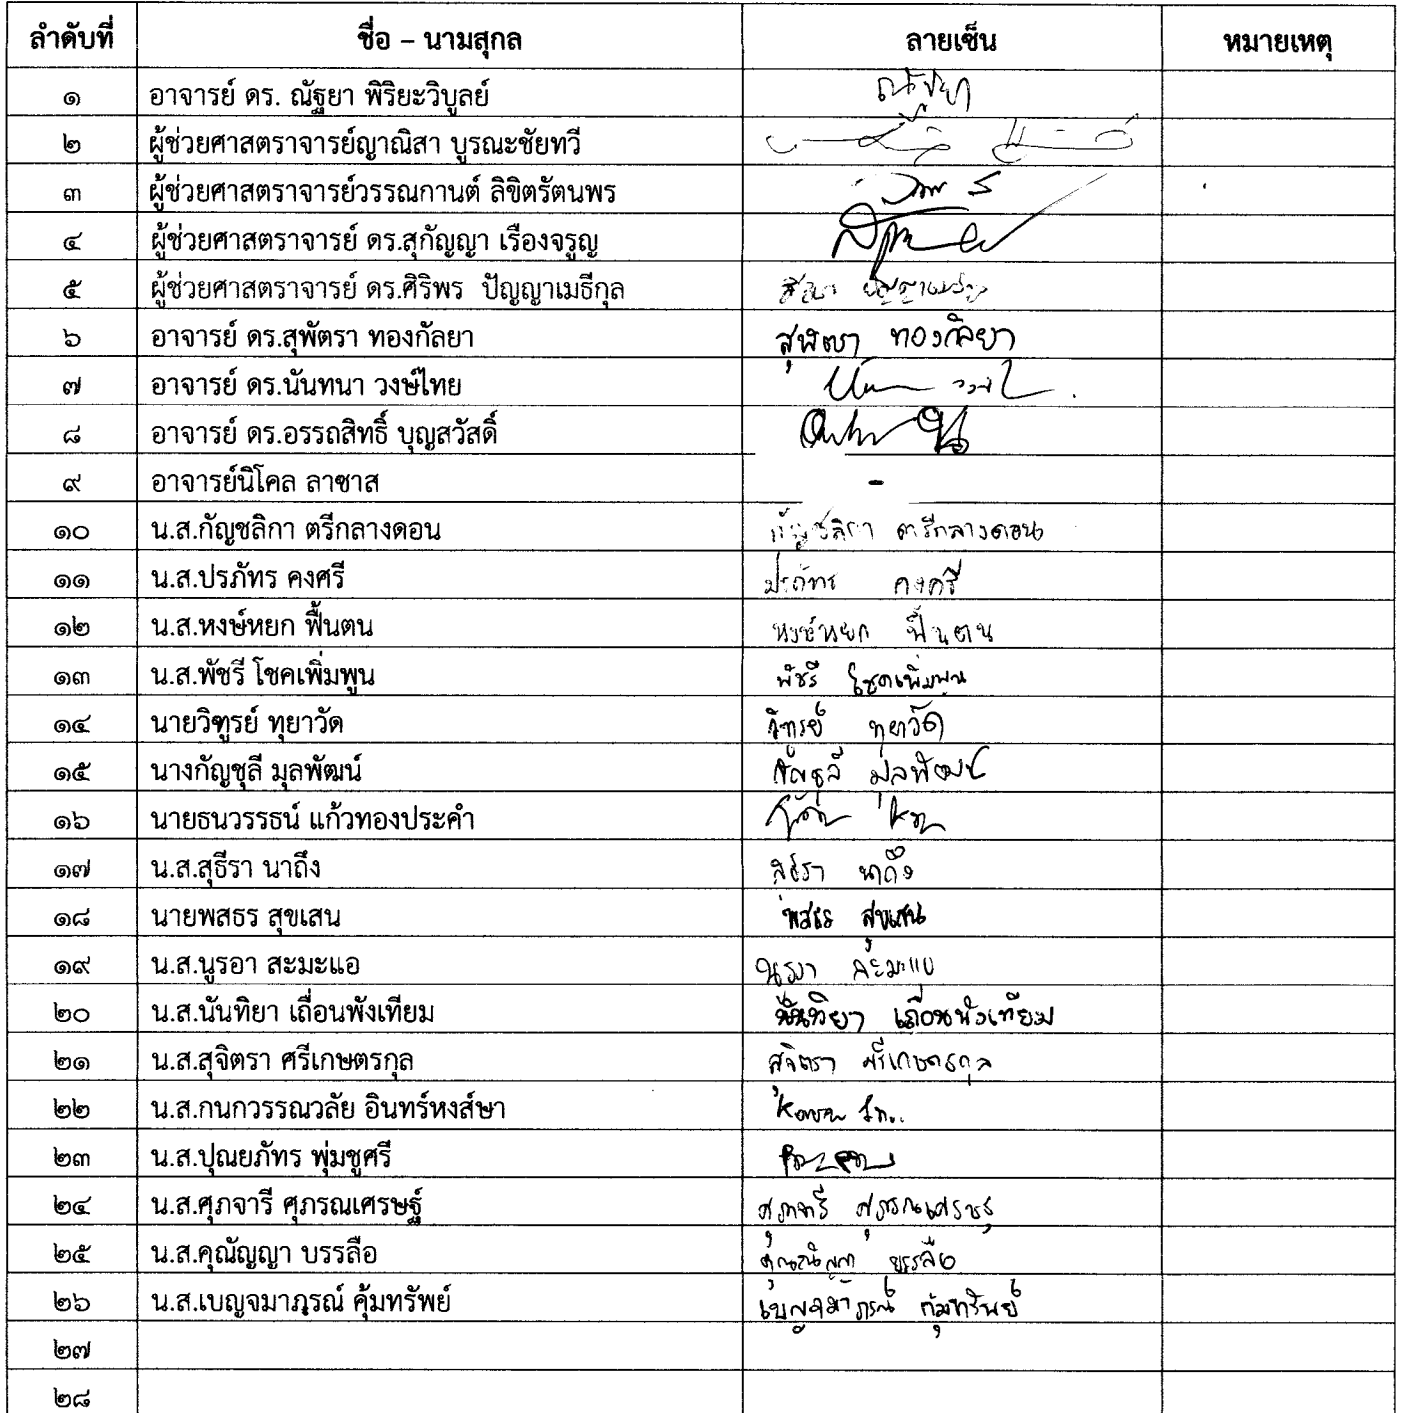 ลำดับที่ ชื่อ – นามสกุล ลายเซ็น หมายเหตุ
๑ อาจารย์ ดร. ณัฐยา พิริยะวิบูลย์ ณัฐยา
๒ ผู้ช่วยศาสตราจารย์ญาณิสา บูรณะชัยทวี
๓ ผู้ช่วยศาสตราจารย์วรรณกานต์ ลิขิตรัตนพร
๔ ผู้ช่วยศาสตราจารย์ ดร.สุกัญญา เรืองจรูญ
๕ ผู้ช่วยศาสตราจารย์ ดร.ศิริพร ปัญญาเมธีกุล
๖ อาจารย์ ดร.สุพัตรา ทองกัลยา สุพัตรา ทองกัลยา
๗ อาจารย์ ดร.นันทนา วงษ์ไทย
๘ อาจารย์ ดร.อรรถสิทธิ์ บุญสวัสดิ์
๙ อาจารย์นิโคล ลาซาส -
๑๐ น.ส.กัญชลิกา ตรีกลางดอน กัญชลิกา ตรีกลางดอน
๑๑ น.ส.ปรภัทร คงศรี ปรภัทร คงศรี
๑๒ น.ส.หงษ์หยก ฟื้นตน หงษ์หยก ฟื้นตน
๑๓ น.ส.พัชรี โชคเพิ่มพูน พัชรี โชคเพิ่มพูน
๑๔ นายวิฑูรย์ ทุยาวัด วิฑูรย์ ทุยาวัด
๑๕ นางกัญชุลี มุลพัฒน์ กัญชุลี มุลพัฒน์
๑๖ นายธนวรรธน์ แก้วทองประคำ
๑๗ น.ส.สุธีรา นาถึง สุธีรา นาถึง
๑๘ นายพสธร สุขเสน พสธร สุขเสน
๑๙ น.ส.นูรอา สะมะแอ นูรอา สะมะแอ
๒๐ น.ส.นันทิยา เถื่อนพังเทียม นันทิยา เถื่อนพังเทียม
๒๑ น.ส.สุจิตรา ศรีเกษตรกุล สุจิตรา ศรีเกษตรกุล
๒๒ น.ส.กนกวรรณวลัย อินทร์หงส์ษา
๒๓ น.ส.ปุณยภัทร พุ่มชูศรี
๒๔ น.ส.ศุภจารี ศุภรณเศรษฐ์ ศุภจารี ศุภรณเศรษฐ์
๒๕ น.ส.คุณัญญา บรรลือ คุณัญญา บรรลือ
๒๖ น.ส.เบญจมาภรณ์ คุ้มทรัพย์ เบญจมาภรณ์ คุ้มทรัพย์
๒๗
๒๘